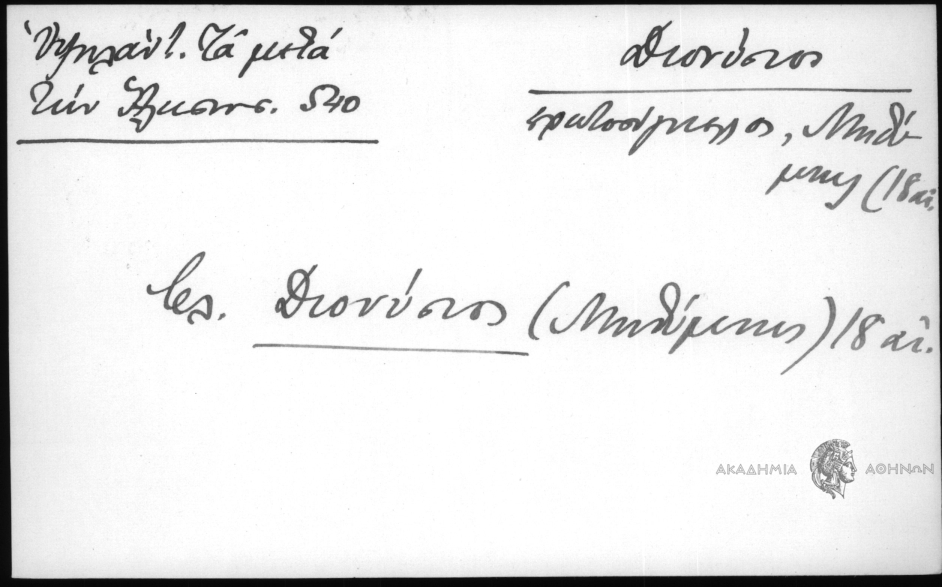 Ὑψηλάντ. Τὰ μετὰ
τὴν Ἅλωσιν. 540
Διονύσιος
πρωτοσύγκελλος, Μηθύ-
μνης (18 αἰ.
βλ. Διονύσιος (Μηθύμνης) 18 αἰ.
ΑΚΑΔΗΜΙΑ ΑΘΗΝΩΝ